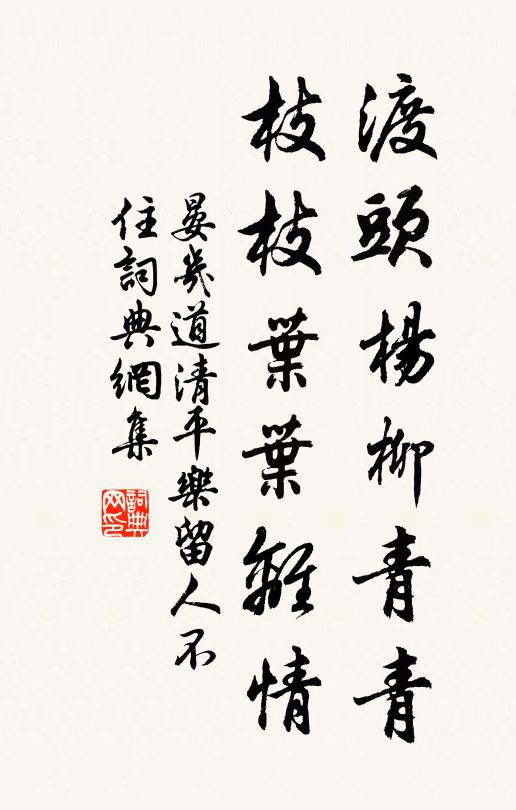 渡頭楊柳青青
枝枝葉葉離情
晏幾道清平樂留人不
住詞典網集
詞典網印